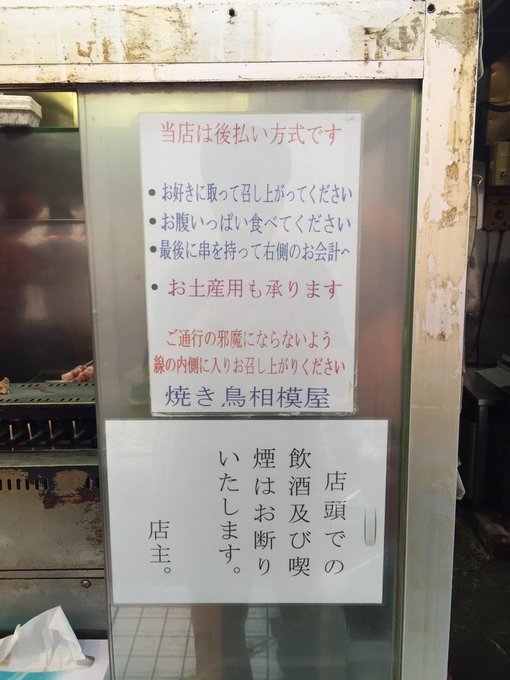 当店は後払い方式です
● お好きに取って召し上がってください
● お腹いっぱい食べてください
● 最後に串を持って右側のお会計へ
● お土産用も承ります
ご通行の邪魔にならないよう
線の内側に入りお召し上がりください
焼き鳥相模屋
店頭での
飲酒及び喫
煙はお断り
いたします。
店主。